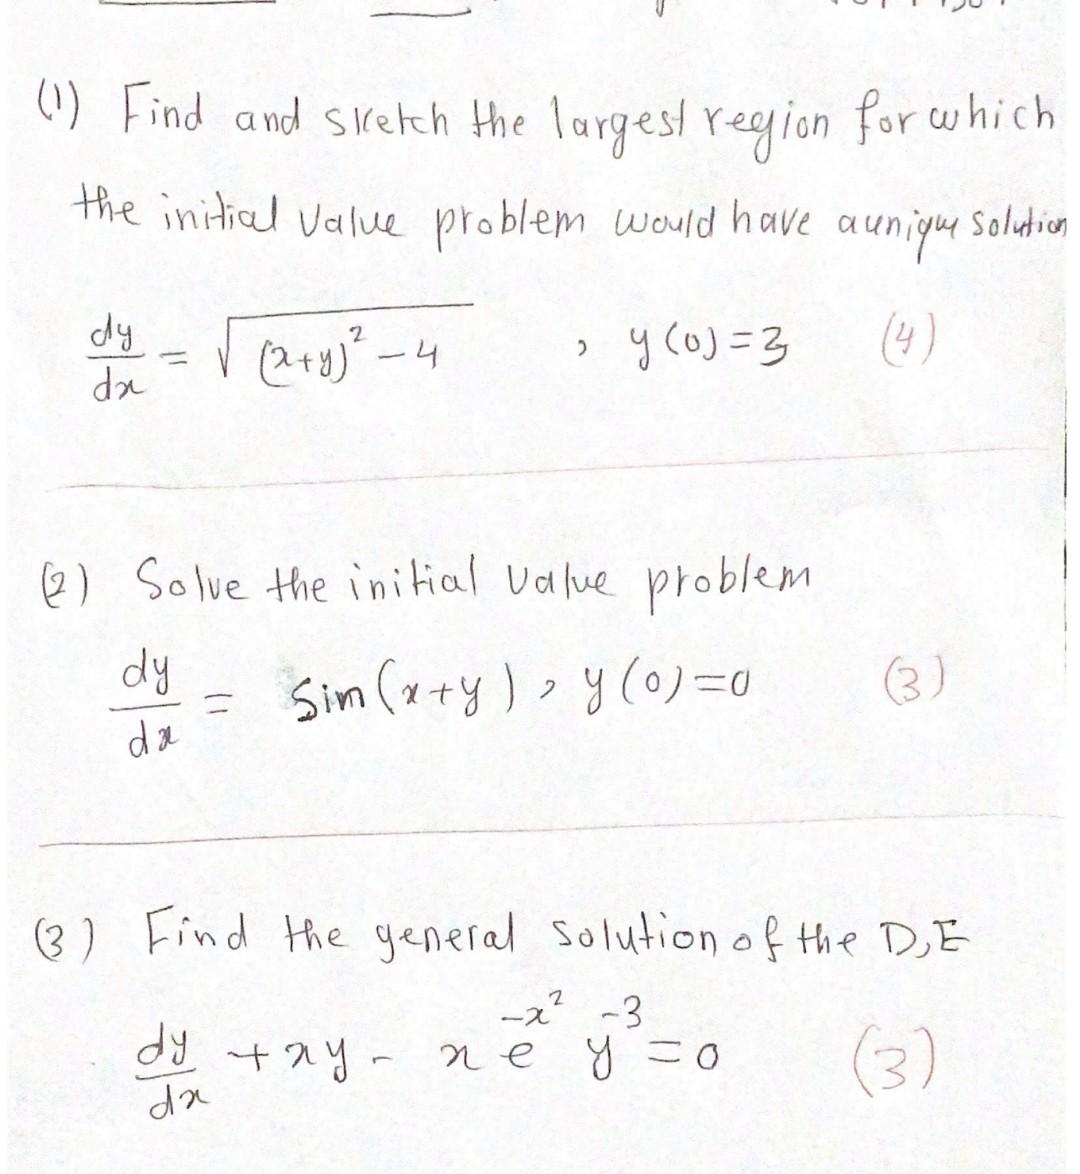 (1) Find and sketch the largest region for which
the initial value problem would have a unique solution
dy/dx = √((x+y)² - 4) , y(0)=3 (4)
(2) Solve the initial value problem
dy/dx = Sin(x+y), y(0)=0 (3)
(3) Find the general solution of the D,E
dy/dx + xy - x e^(-x²) y^(-3) = 0 (3)